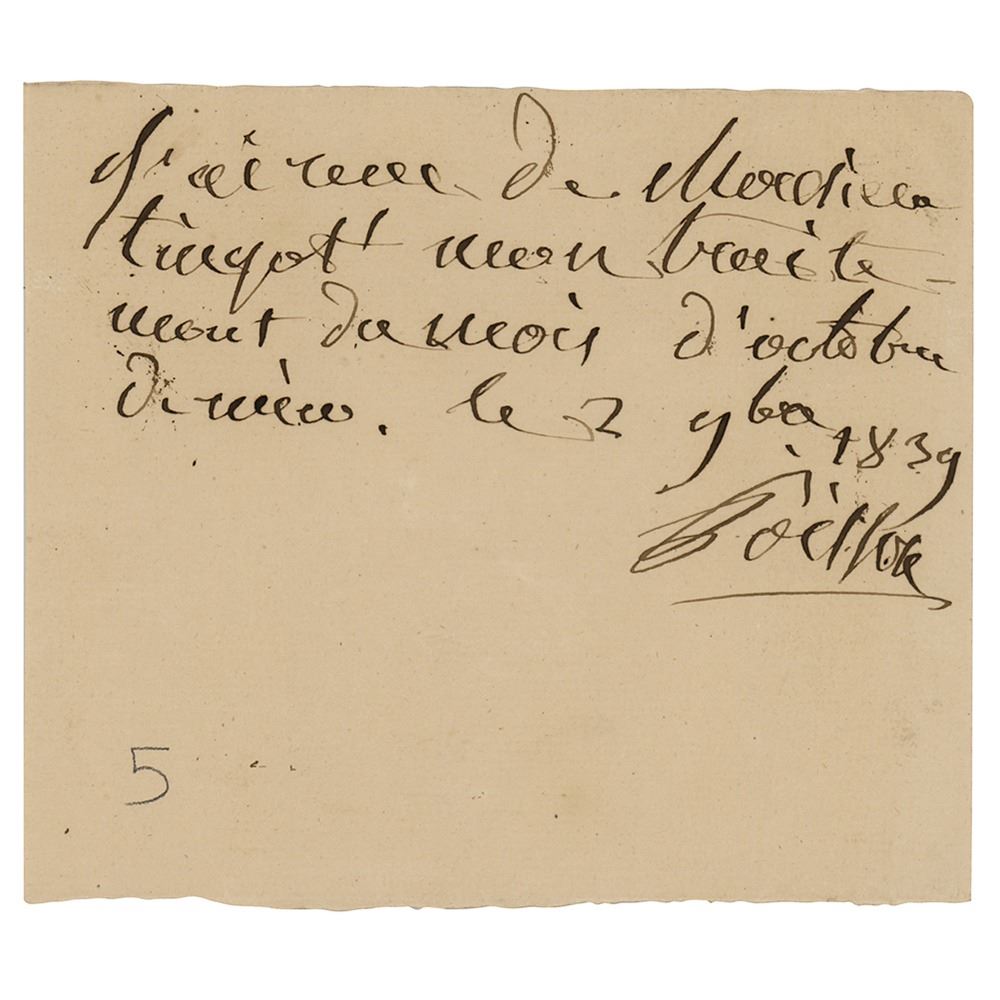 J'ai recu de Monsieur
tingot mon traite-
ment du mois d'octobre
dernier. le 2 9bre 1839
Poisson
5